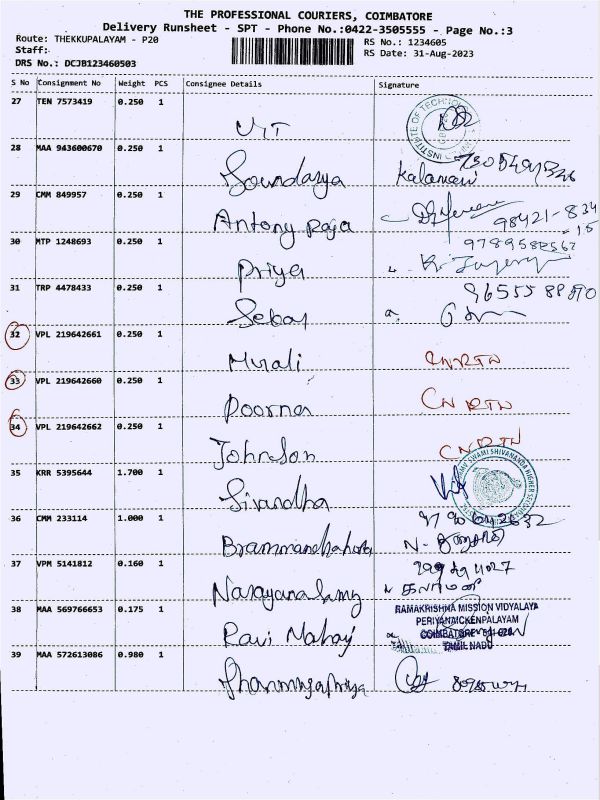 THE PROFESSIONAL COURIERS, COIMBATORE
Delivery Runsheet - SPT - Phone No.:0422-3505555 - Page No.:3
Route: THEKKUPALAYAM - P20
RS No.: 1234605
Staff:
RS Date: 31-Aug-2023
DRS No.: DCJB123460503
S No Consignment No Weight PCS Consignee Details Signature
27 TEN 7573419 0.250 1
INSTITUTE OF TECHNOLOGY
28 MAA 943600670 0.250 1 Soundarya Kalamani
29 CMM 849957 0.250 1 Antony Raja 98421-834
15
30 MTP 1248693 0.250 1 Priya 9789582562
31 TRP 4478433 0.250 1 Sebas
32 VPL 219642661 0.250 1 Murali CNRTN
33 VPL 219642660 0.250 1 Poorna CNRTN
34 VPL 219642662 0.250 1 Johnson CNRTN
35 KRR 5395644 1.700 1
SWAMI SHIVANANDA HIGHER
36 CMM 233114 1.000 1
37 VPM 5141812 0.160 1 Narayanasamy
38 MAA 569766653 0.175 1 Ravi
RAMAKRISHNA MISSION VIDYALAYA
PERIYANAICKENPALAYAM
COIMBATORE
TAMIL NADU
39 MAA 572613086 0.980 1 Shanmugapriya